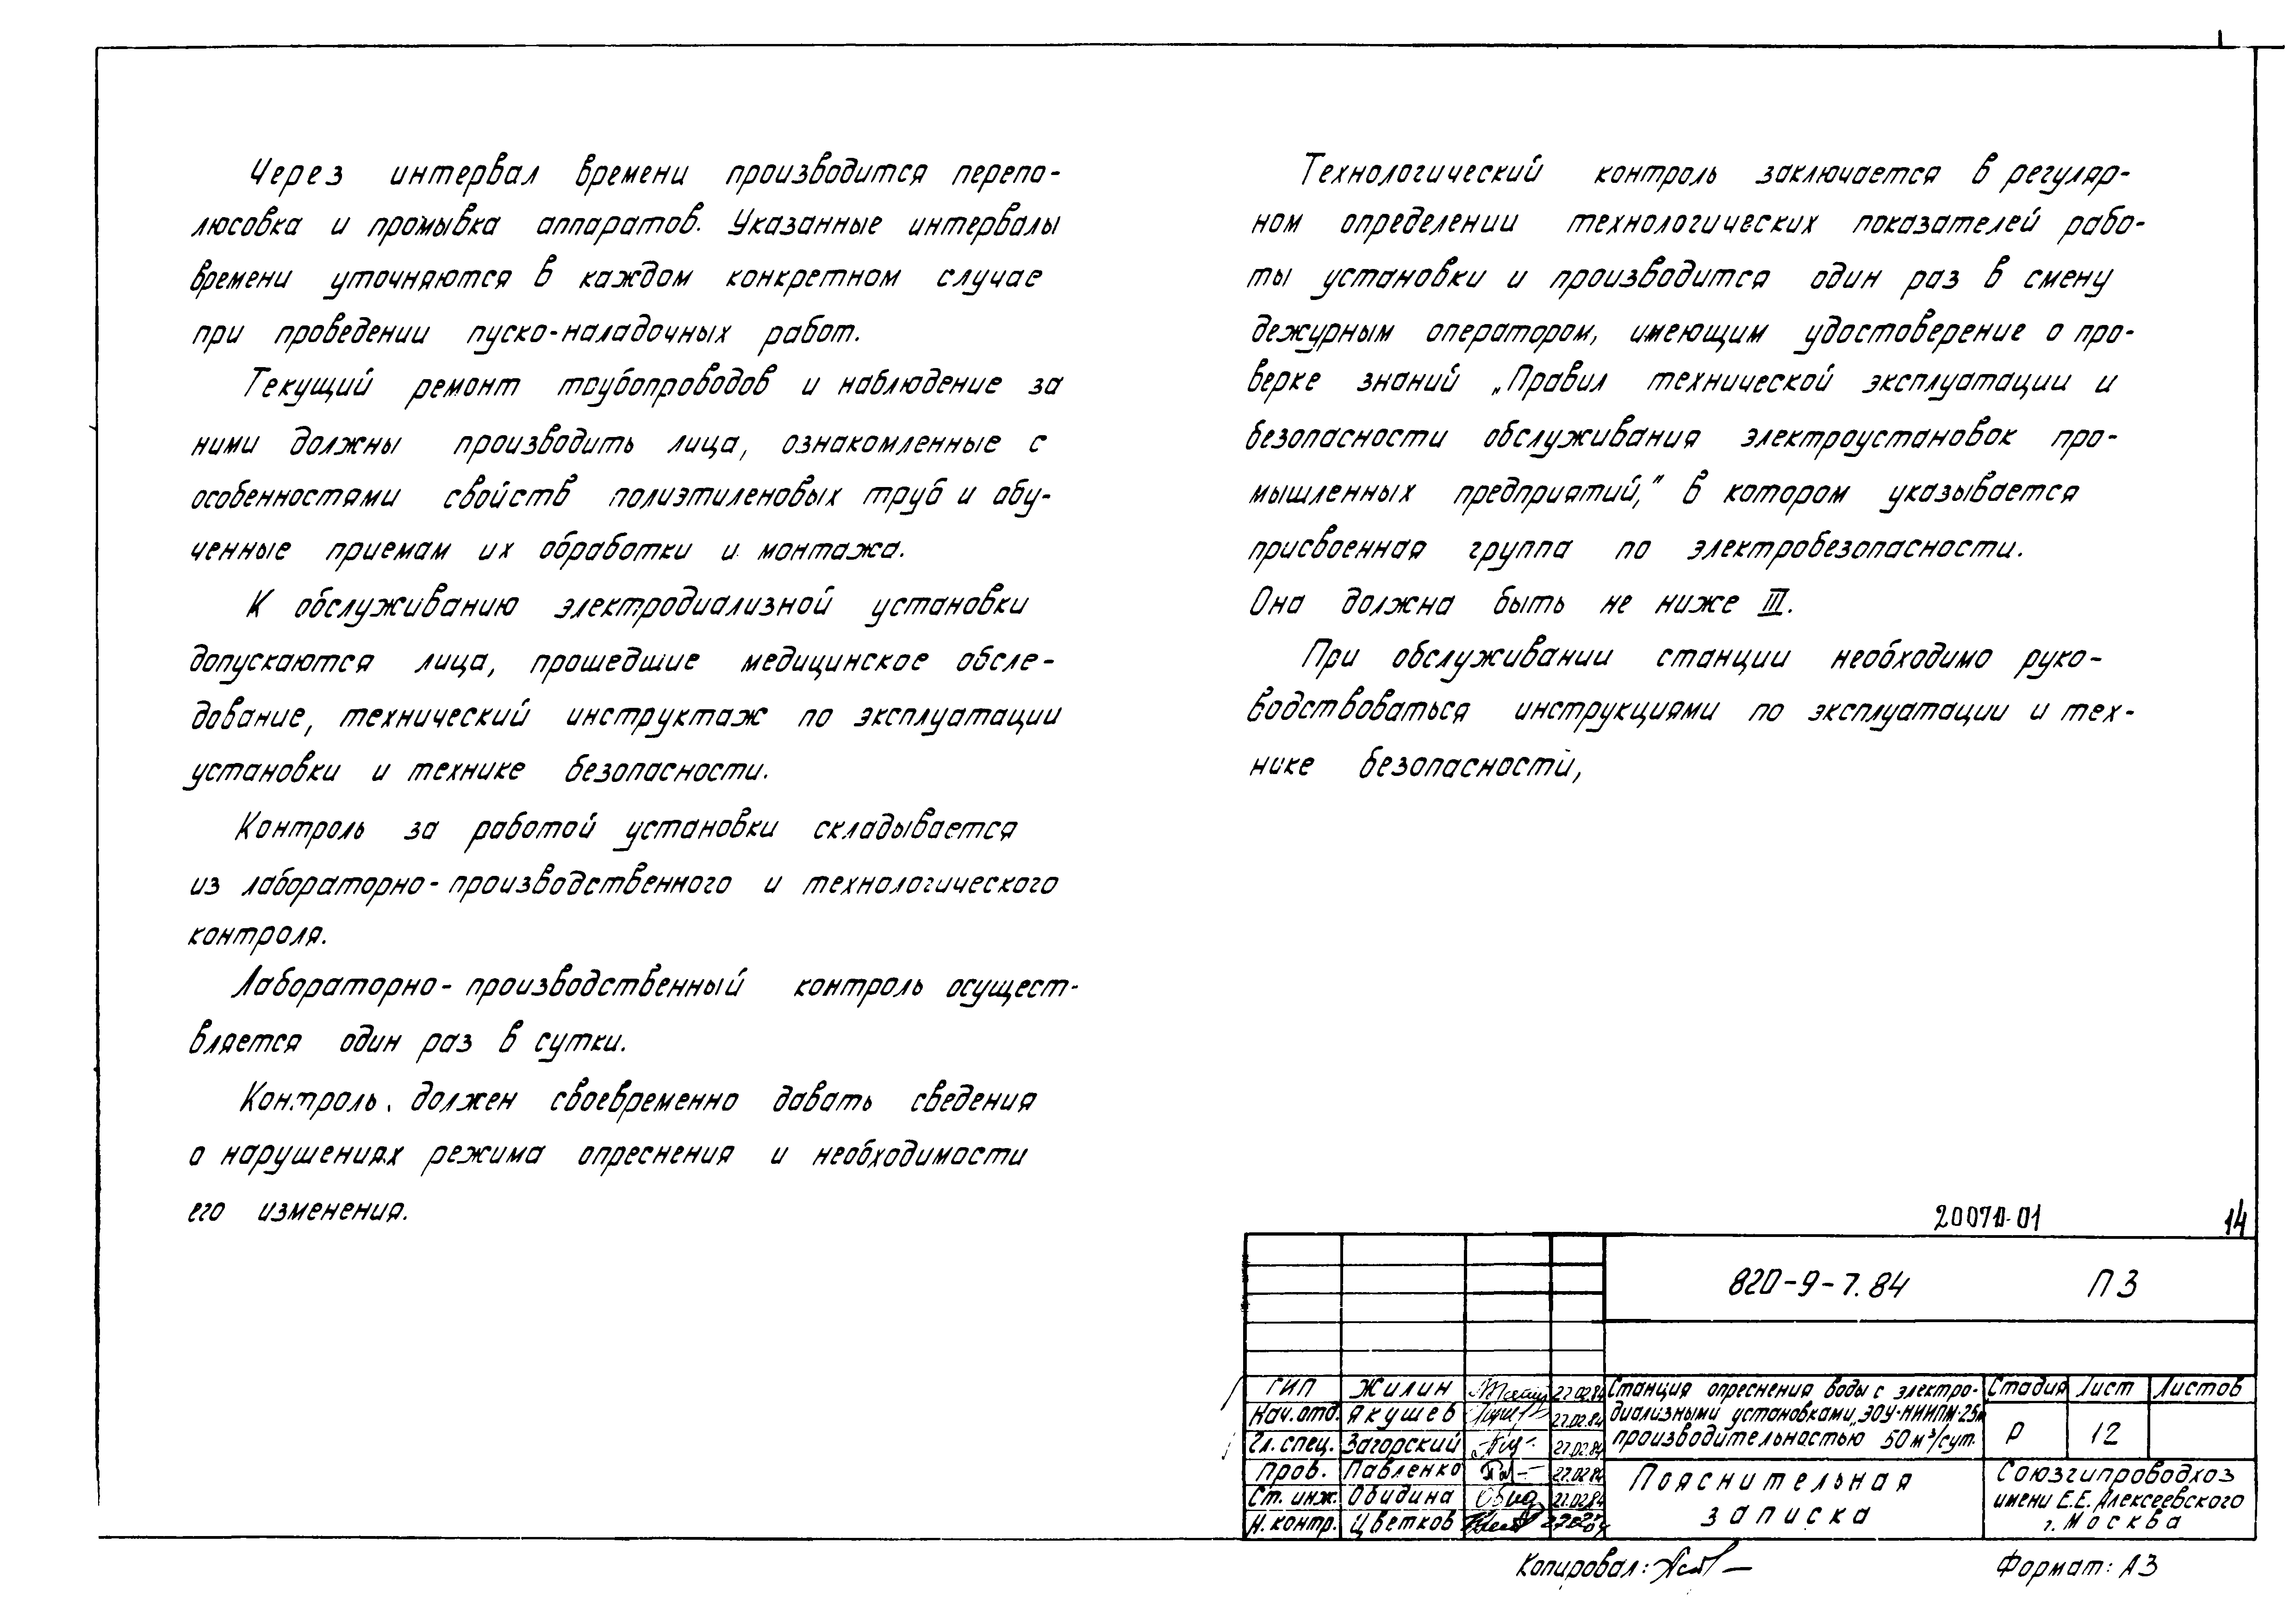 Через интервал времени производится перепо-
люсовка и промывка аппаратов. Указанные интервалы
времени уточняются в каждом конкретном случае
при проведении пуско-наладочных работ.
Текущий ремонт трубопроводов и наблюдение за
ними должны производить лица, ознакомленные с
особенностями свойств полиэтиленовых труб и обу-
ченные приемам их обработки и монтажа.
К обслуживанию электродиализной установки
допускаются лица, прошедшие медицинское обсле-
дование, технический инструктаж по эксплуатации
установки и технике безопасности.
Контроль за работой установки складывается
из лабораторно-производственного и технологического
контроля.
Лабораторно-производственный контроль осущест-
вляется один раз в сутки.
Контроль должен своевременно давать сведения
о нарушениях режима опреснения и необходимости
его изменения.
Технологический контроль заключается в регуляр-
ном определении технологических показателей рабо-
ты установки и производится один раз в смену
дежурным оператором, имеющим удостоверение о про-
верке знаний „Правил технической эксплуатации и
безопасности обслуживания электроустановок про-
мышленных предприятий," в котором указывается
присвоенная группа по электробезопасности.
Она должна быть не ниже III.
При обслуживании станции необходимо руко-
водствоваться инструкциями по эксплуатации и тех-
нике безопасности,
20070-01 14
820-9-7.84 ПЗ
ГИП Жилин 27.02.84
Нач.отд. Якушев 27.02.84
Гл. спец. Загорский 27.02.84
Пров. Павленко 27.02.84
Ст. инж. Обидина 27.02.84
Н. контр. Цветков
Станция опреснения воды с электро-
диализными установками „ЭОУ-НИИПМ-25м
производительностью 50 м³/сут.
Стадия Лист Листов
Р 12
Пояснительная
записка
Союзгипроводхоз
имени Е.Е. Алексеевского
г. Москва
Копировал:
Формат: А3